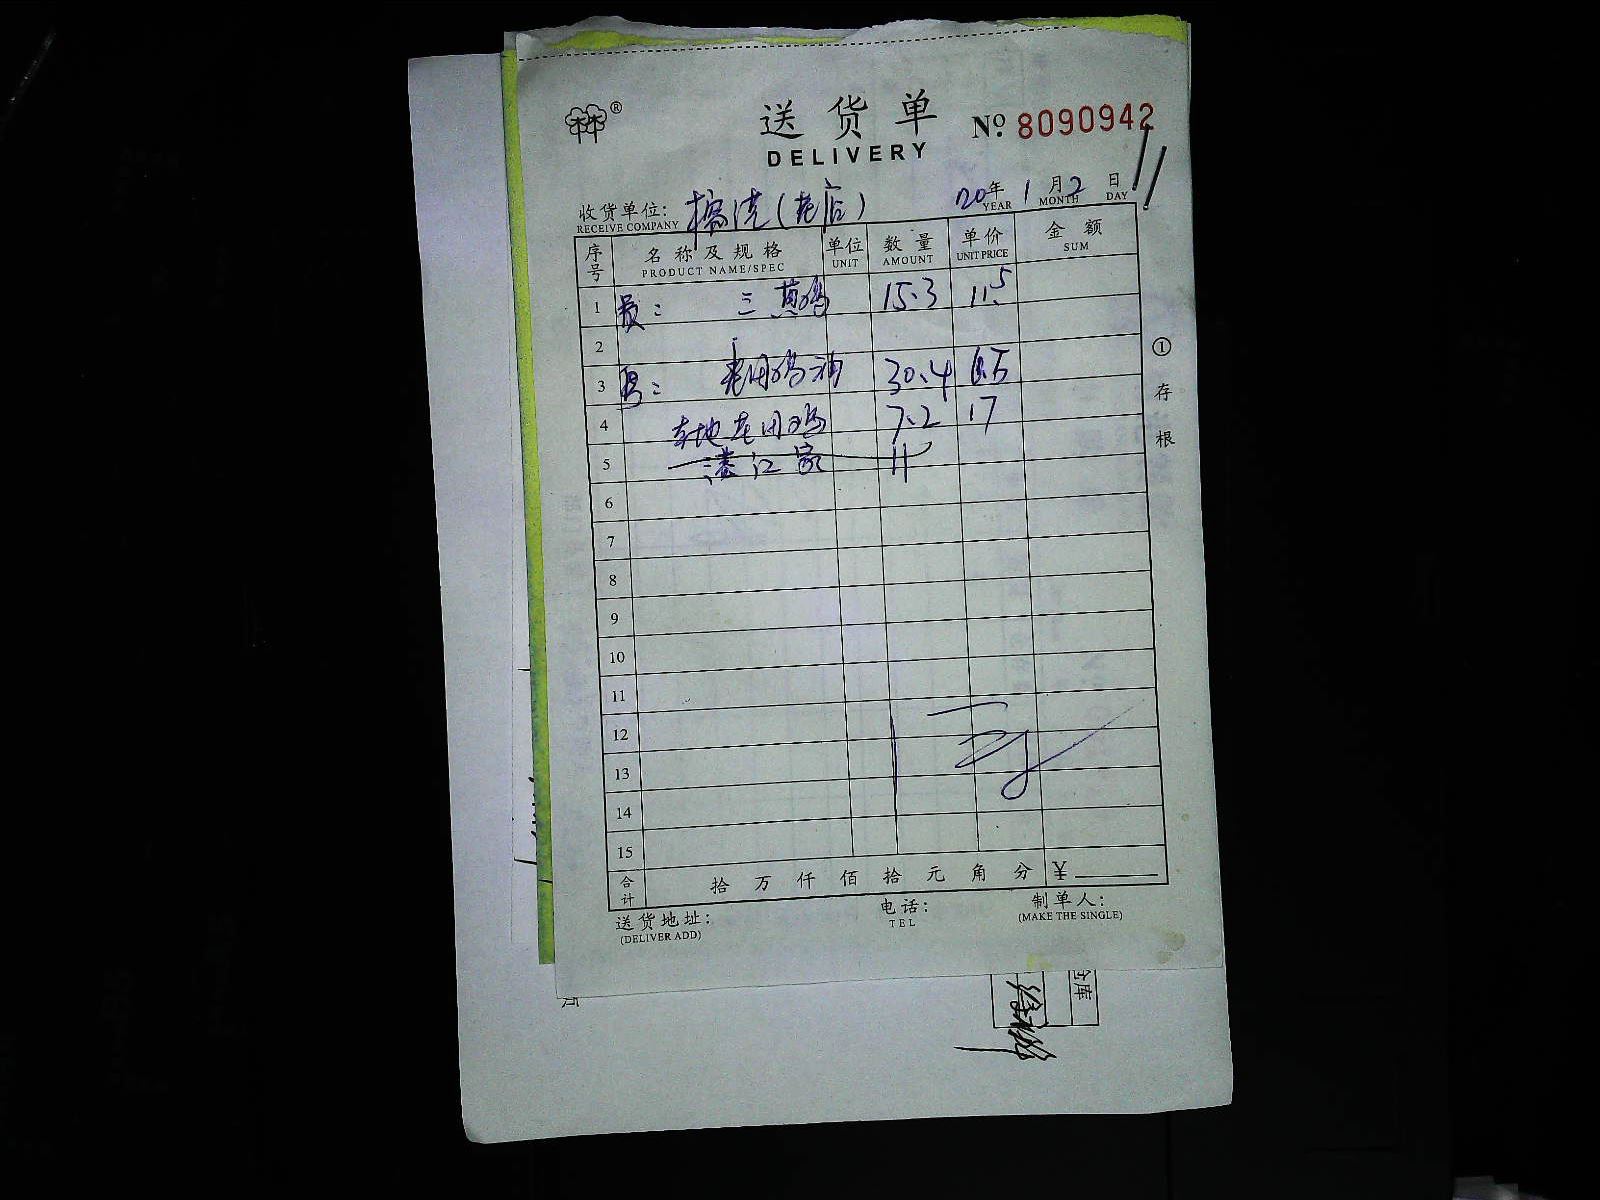 林®
送货单 No. 8090942
DELIVERY
收货单位: (老店) 20年 1月 2日
RECEIVE COMPANY YEAR MONTH DAY
序号 名称及规格 单位 数量 单价 金额
PRODUCT NAME/SPEC UNIT AMOUNT UNIT PRICE SUM
1 员: 三黄鸡 15.3 11.5
2
3 老用鸡油 30.4 6.5
4 本地老用鸡 7.2 17
5 11
6
7
8
9
10
11
12
13
14
15
合计 拾 万 仟 佰 拾 元 角 分 ¥
送货地址: 电话: 制单人:
(DELIVER ADD) TEL (MAKE THE SINGLE)
① 存根
仓库